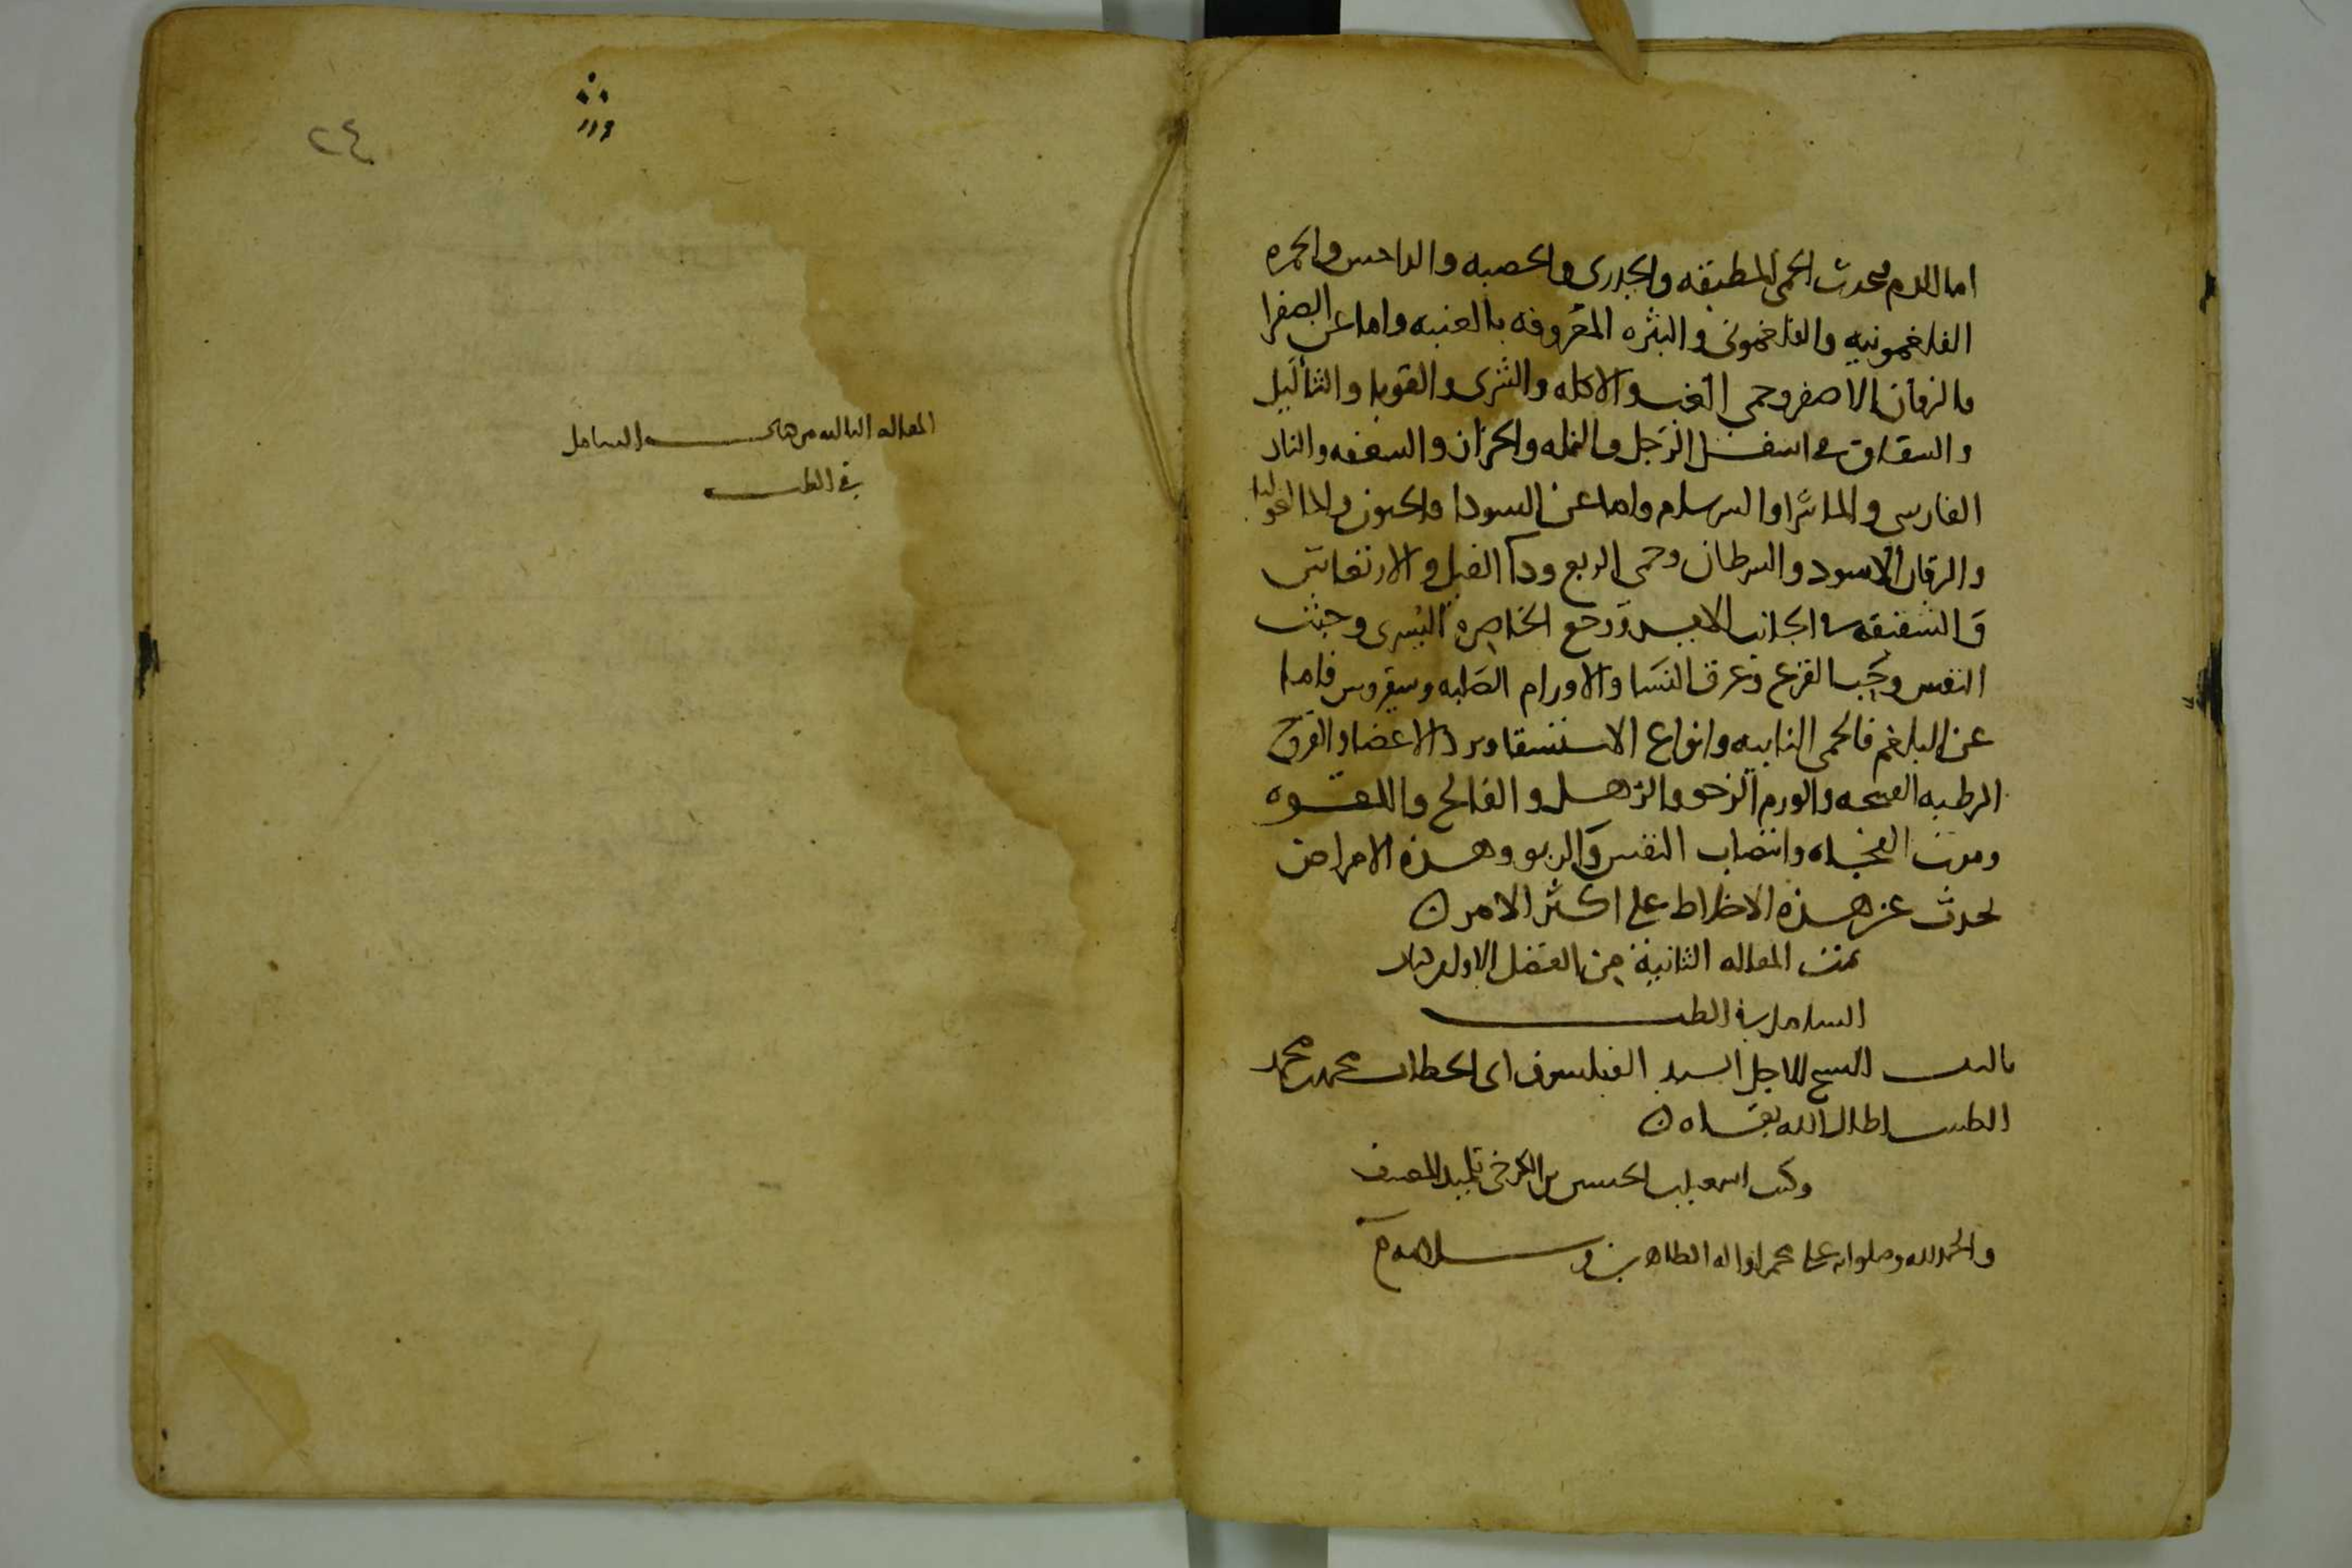 اما الدم فيحدث الحمى المطبقه والجدرى والحصبه والداحس والحمره
الفلغمونيه والفلغمونى والبثره المعروفه بالعنبيه واما عن الصفرا
فاليرقان الاصفر وحمى الغب والاكله والشرى والقوبا والثآليل
والشقاق فى اسفل الرجل والنمله والحزاز والسعفه والنار
الفارسى والماشرا والسرسام واما عن السودا فالجنون والمالنخوليا
واليرقان الاسود والسرطان وحمى الربع ودآ الفيل
والشقيقه فى الجانب الايسر ووجع الخاصره اليسرى وخبث
النفس وحب القرع وعرق النسا والاورام الصلبه وسقيروس فاما
عن البلغم فالحمى النايبه وانواع الاستسقا وبرد الاعضا والقروح
الرطبه والورم الرخو والترهل والفالج واللقوه
وموت الفجاه وانتصاب النفس والربو وهذه الامراض
تحدث عن هذه الاخلاط على اكثر الامر
تمت المقاله الثانيه من الفصل الاول من كتاب
الشامل فى الطب
تاليف الشيخ الاجل السيد الفيلسوف ابى الخطاب محمد بن محمد
الطبيب اطال الله بقاه
وكتب الحسين بن الكرخى تلميذ المصنف
والحمد لله وصلواته على محمد واله الطاهرين وسلامه
٢٤
المقاله الثالثه من كتاب الشامل
فى الطب